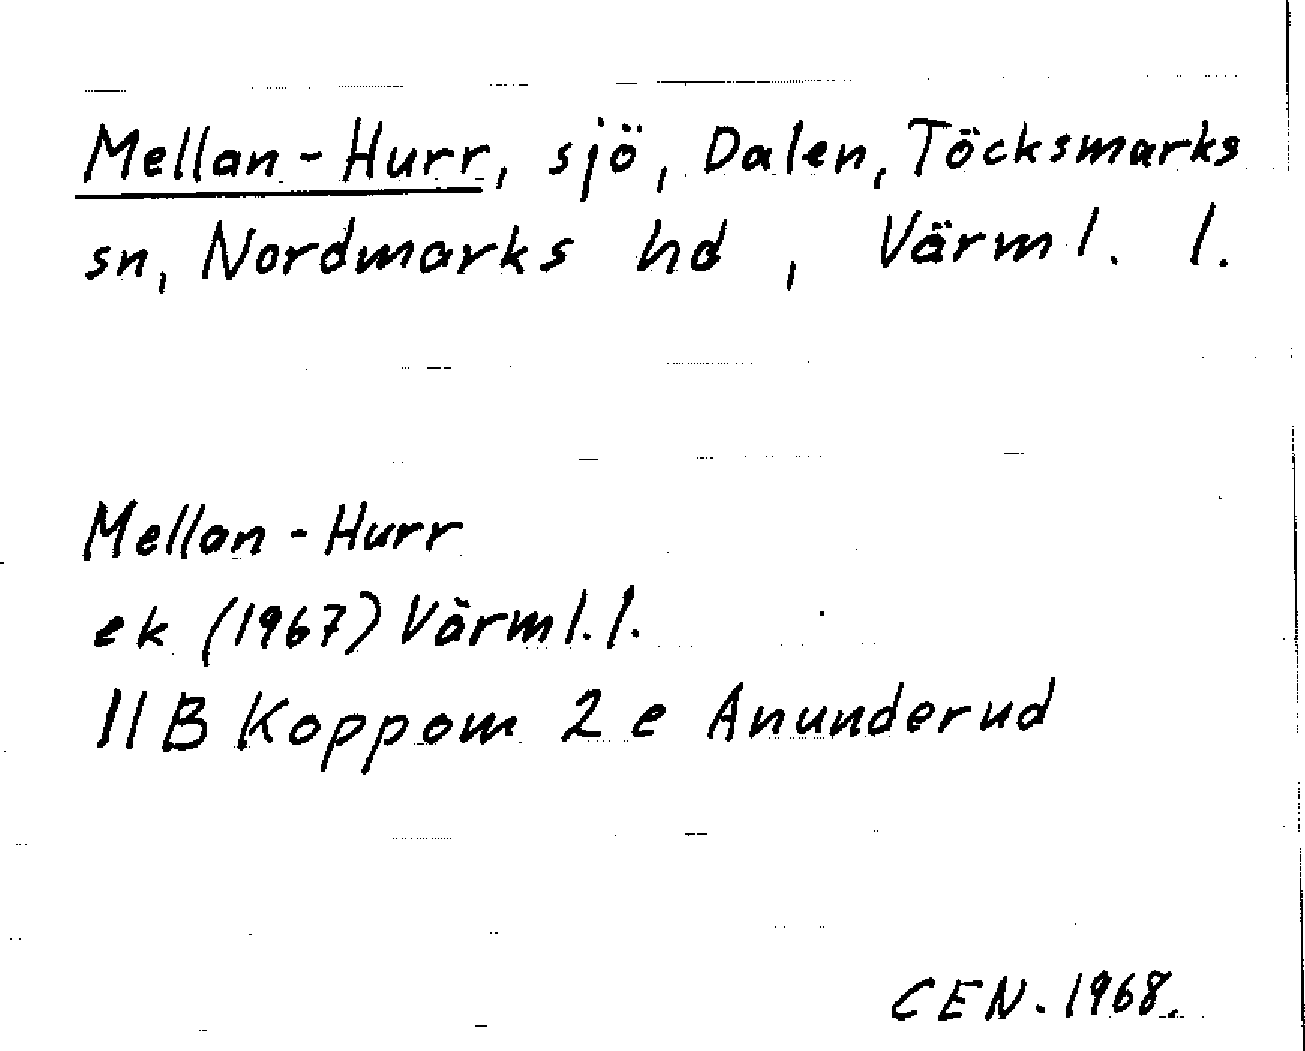 Mellan-Hurr, sjö, Dalen, Töcksmarks
sn, Nordmarks hd, Värml. l.
Mellan-Hurr
ek (1967) Värml. l.
11B Koppom 2e Anunderud
CEN. 1968.